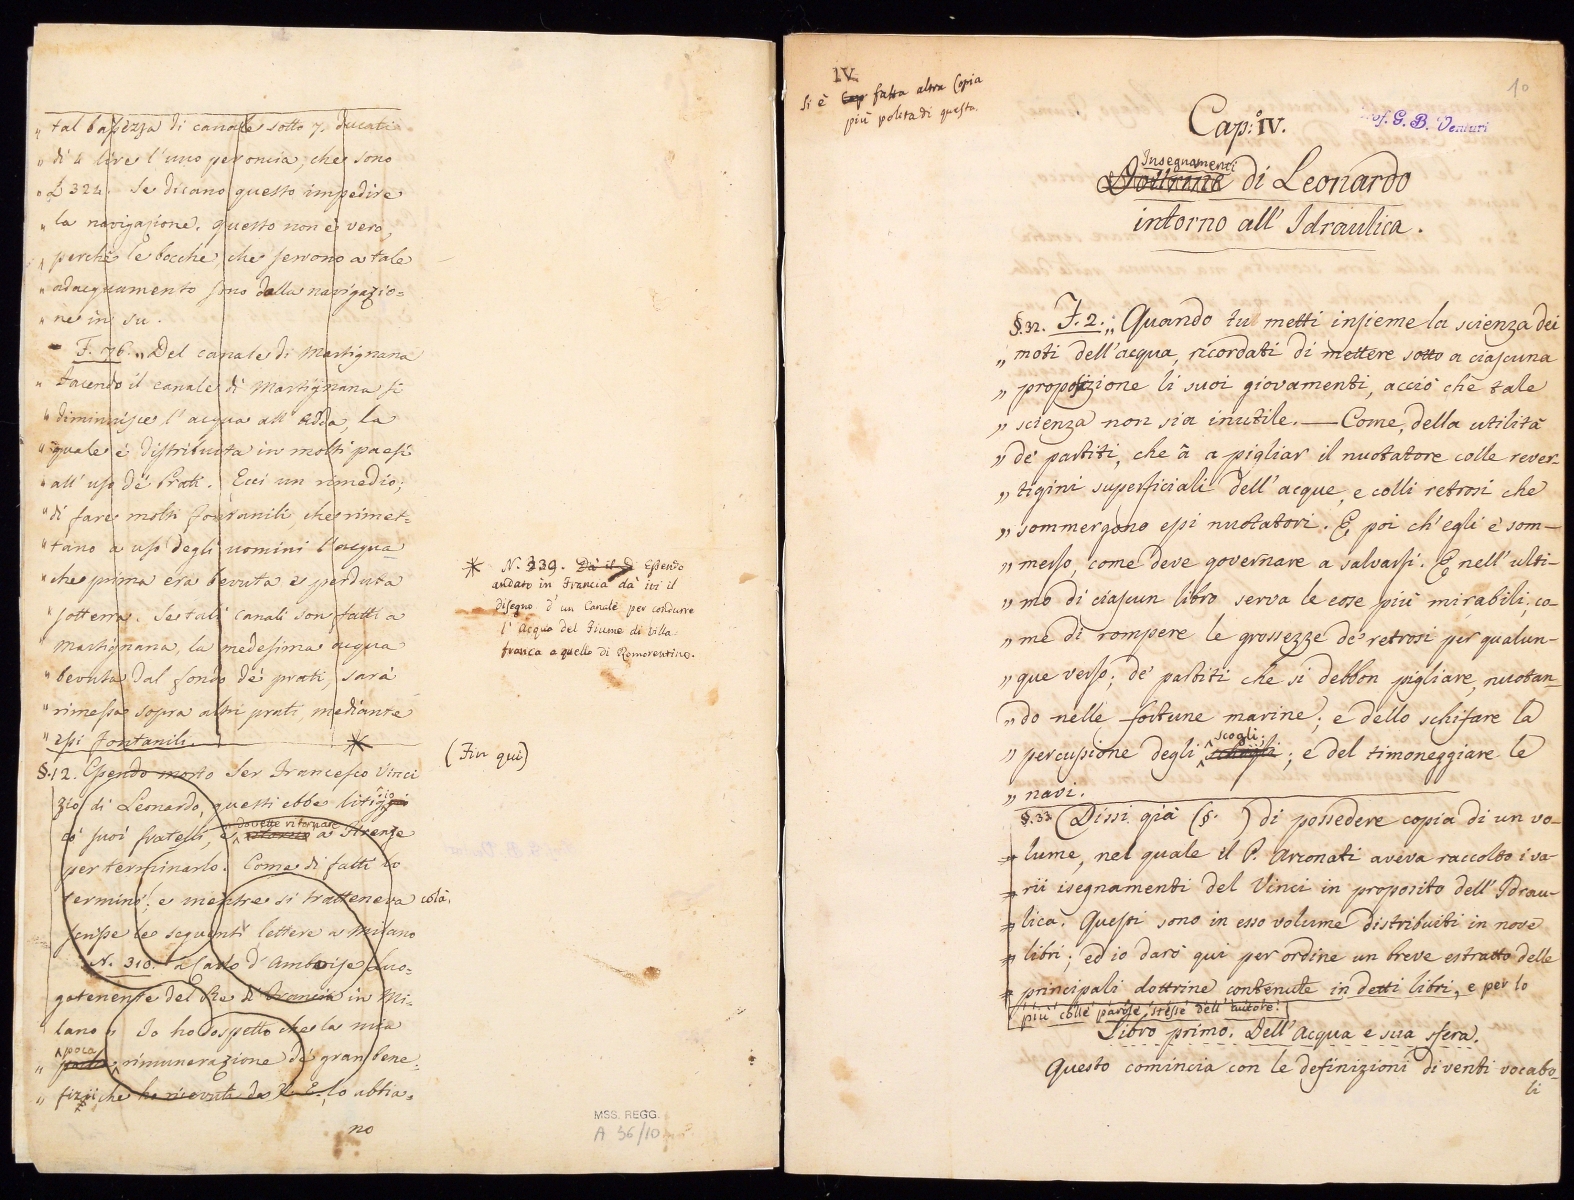 „ tal bassezza di canale sotto 7. ducati
„ di 4 lire l'uno per oncia, che sono
„ £ 324. Se dicano questo impedire
„ la navigazione. questo non è vero,
„ perchè le bocche, che servono a tale
„ adacquamento sono dalla navigazio=
„ ne in su.
F. 76. „ Del canale di Martignana
„ facendo il canale di Martignana si
„ diminuisce l'acqua all'Adda, la
„ quale è distribuita in molti paesi
„ all'uso de' Prati. Ecci un rimedio;
„ di fare molti fontanili che rimet=
„ tano a uso degli uomini l'acqua
„ che prima era bevuta e perduta
„ sotterra. Se tali canali son fatti a
„ Martignana, la medesima acqua
„ bevuta dal fondo de' prati, sarà
„ rimessa sopra altri prati, mediante
„ essi fontanili.
* N. 339. Dà il d Essendo
andato in Francia dà ivi il
disegno d'un Canale per condurre
l'Acqua del Fiume di Villa
franca a quello di Romorentino.
(Fin qui)
§.12. Essendo morto Ser Francesco Vinci
zio di Leonardo, questi ebbe litigio
co' suoi fratelli, e dovette ritornare a Firenze
per terminarlo. Come di fatti lo
terminò; e mentre si tratteneva colà,
scrisse le seguenti lettere a Milano
N. 310. a Carlo d'Amboise Luo=
gotenente del Re di Francia in Mi=
lano „ Io ho sospetto che la mia
„ poca rimunerazione de' gran bene=
„ fizii che ho ricevuti da V. E. lo abbia=
no
MSS. REGG.
A 36/10
IV.
Si è Cap fatta altra Copia
più polita di questa.
10
Prof. G. B. Venturi
Cap: IV.
Insegnamenti
Dottrine di Leonardo
intorno all' Idraulica.
§.32. F. 2. „ Quando tu metti insieme la scienza dei
„ moti dell'acqua, ricordati di mettere sotto a ciascuna
„ proposizione li suoi giovamenti, acciò che tale
„ scienza non sia inutile. — Come, della utilità
„ de' partiti, che à a pigliar il nuotatore colle rever=
„ tigini superficiali dell'acque, e colli retrosi che
„ sommergono essi nuotatori. E, poi ch'egli è som—
„ merso, come deve governare a salvarsi. E, nell'ulti—
„ mo di ciascun libro serva le cose più mirabili; co—
„ me di rompere le grossezze de' retrosi per qualun—
„ que verso; de' partiti che si debbon pigliare, nuotan—
„ do nelle fortune marine; e dello schifare la
„ percussione degli scogli; e del timoneggiare le
„ navi.
§.33 (Dissi già (§. ) di possedere copia di un vo=
lume, nel quale il P. Arconati aveva raccolto i va=
rii isegnamenti del Vinci in proposito dell'Idrau=
lica. Questi sono in esso volume distribuiti in nove
libri; ed io darò qui per ordine un breve estratto delle
principali dottrine contenute in detti libri, e per lo
più colle parole stesse dell'autore.
Libro primo. Dell'Acqua e sua sfera.
Questo comincia con le definizioni di venti vocabo=
li